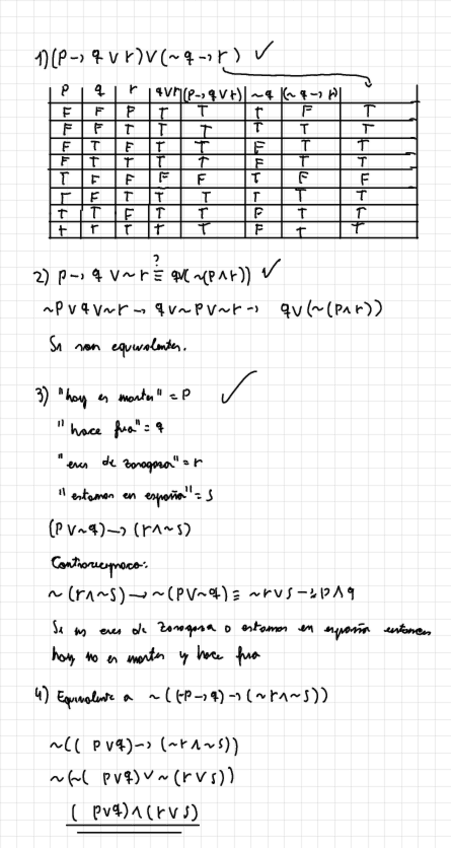 1) (P → q ∨ r) ∨ (~q → r) ✓
p q r q∨r (p→q∨r) ~q (~q→r)
F F F T T T F T
F F T T T T T T
F T F T T F T T
F T T T T F T T
T F F F F T F F
T F T T T T T T
T T F T T F T T
T T T T T F T T
2) p → q ∨ ~r ≡? q∨(~(p∧r)) ✓
~p ∨ q ∨ ~r → q ∨ ~p ∨ ~r → q∨(~(p∧r))
Si son equivalentes.
3) "hoy es martes" = p ✓
"hace frio" = q
"eres de zaragoza" = r
"estamos en españa" = s
(p ∨ ~q) → (r ∧ ~s)
Contrareciproco:
~(r∧~s) → ~(p∨~q) ≡ ~r∨s → ~p∧q
Si no eres de Zaragoza o estamos en españa entonces
hoy no es martes y hace frio
4) Equivalente a ~((~p→q)→(~r∧~s))
~((p∨q)→(~r∧~s))
~(~(p∨q)∨~(r∨s))
(p∨q)∧(r∨s)